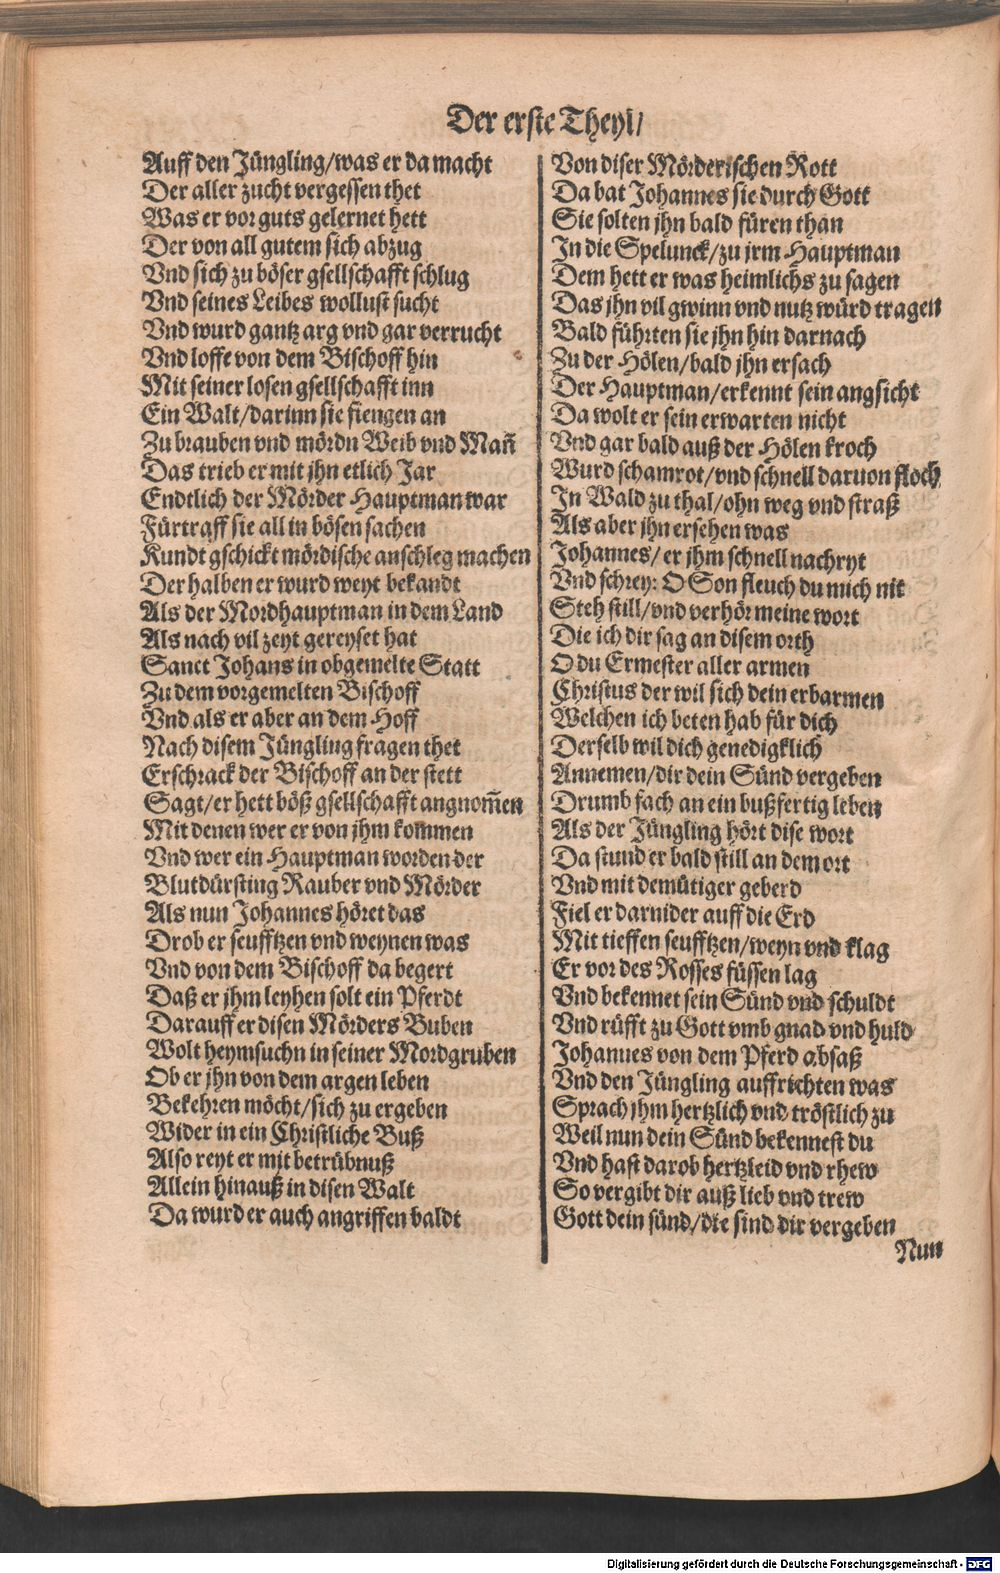 Der erste Theyl/
Auff den Jüngling/was er da macht
Der aller zucht vergessen thet
Was er vor guts gelernet hett
Der von all gutem sich abzug
Vnd sich zu böser gsellschafft schlug
Vnd seines Leibes wollust sucht
Vnd wurd gantz arg vnd gar verrucht
Vnd loffe von dem Bischoff hin
Mit seiner losen gsellschafft inn
Ein Walt/darinn sie fiengen an
Zu brauben vnd mördn Weib vnd Mañ
Das trieb er mit jhn etlich Jar
Endtlich der Mörder Hauptman war
Fürtraff sie all in bösen sachen
Kundt gschickt mördische anschleg machen
Der halben er wurd weyt bekandt
Als der Mordhauptman in dem Land
Als nach vil zeyt gereyset hat
Sanct Johans in obgemelte Statt
Zu dem vorgemelten Bischoff
Vnd als er aber an dem Hoff
Nach disem Jüngling fragen thet
Erschrack der Bischoff an der stett
Sagt/er hett böß gsellschafft angnom̃en
Mit denen wer er von jhm kommen
Vnd wer ein Hauptman worden der
Blutdürsting Rauber vnd Mörder
Als nun Johannes höret das
Drob er seufftzen vnd weynen was
Vnd von dem Bischoff da begert
Daß er jhm leyhen solt ein Pferdt
Darauff er disen Mörders Buben
Wolt heymsuchn in seiner Mordgruben
Ob er jhn von dem argen leben
Bekehren möcht/sich zu ergeben
Wider in ein Christliche Buß
Also reyt er mit betrübnuß
Allein hinauß in disen Walt
Da wurd er auch angriffen baldt
Von diser Mörderischen Rott
Da bat Johannes sie durch Gott
Sie solten jhn bald füren than
In die Spelunck/zu jrm Hauptman
Dem hett er was heimlichs zu sagen
Das jhn vil gwinn vnd nutz würd tragen
Bald führten sie jhn hin darnach
Zu der Hölen/bald jhn ersach
Der Hauptman/erkennt sein angsicht
Da wolt er sein erwarten nicht
Vnd gar bald auß der Hölen kroch
Wurd schamrot/vnd schnell daruon floch
In Wald zu thal/ohn weg vnd straß
Als aber jhn ersehen was
Johannes/er jhm schnell nachryt
Vnd schrey: O Son fleuch du mich nit
Steh still/vnd verhör meine wort
Die ich dir sag an disem orth
O du Ermester aller armen
Christus der wil sich dein erbarmen
Welchen ich beten hab für dich
Derselb wil dich genedigklich
Annemen/dir dein Sünd vergeben
Drumb fach an ein bußfertig leben
Als der Jüngling hört dise wort
Da stund er bald still an dem ort
Vnd mit demütiger geberd
Fiel er darnider auff die Erd
Mit tieffen seufftzen/weyn vnd klag
Er vor des Rosses füssen lag
Vnd bekennet sein Sünd vnd schuldt
Vnd rüfft zu Gott vmb gnad vnd huld
Johannes von dem Pferd absaß
Vnd den Jüngling auffrichten was
Sprach jhm hertzlich vnd tröstlich zu
Weil nun dein Sünd bekennest du
Vnd hast darob hertzleid vnd rhew
So vergibt dir auß lieb vnd trew
Gott dein sünd/die sind dir vergeben
Nun
Digitalisierung gefördert durch die Deutsche Forschungsgemeinschaft - DFG